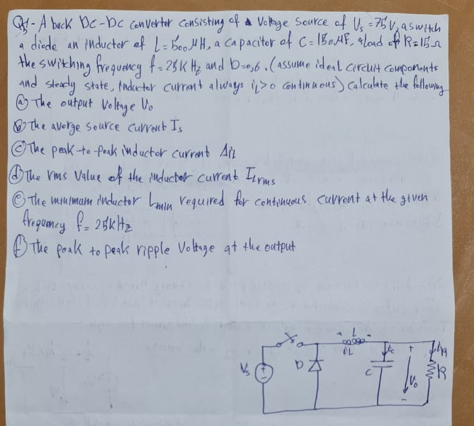 Q3- A buck DC-DC converter consisting of a voltage source of Vs = 75V, a switch
a diode an inductor of L = 500 μH, a capacitor of C = 150 μF, a load of R = 15 Ω
the switching frequency f = 25 kHz and D = 0,6. (assume ideal circuit components
and steady state, inductor current always iL > 0 continuous) calculate the following
(a) The output voltage Vo
(b) The averge source current Is
(c) The peak-to-peak inductor current ΔiL
(d) The rms value of the inductor current ILrms
(e) The minimum inductor Lmin required for continuous current at the given
frequency f = 25 kHz
(f) The peak to peak ripple voltage at the output
+ L -
iL
ic
+
Vs
D
C
Vo
R
-